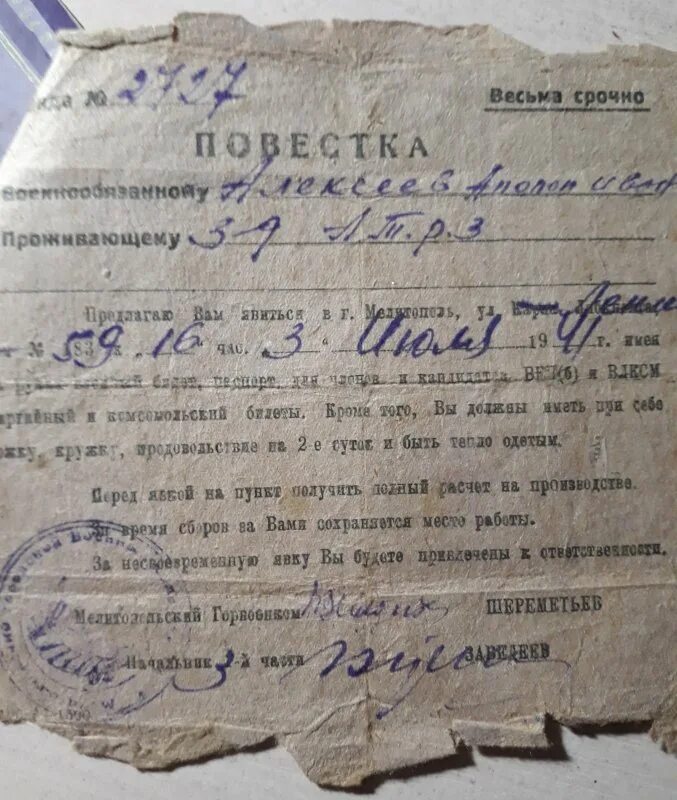 № 2727
Весьма срочно
ПОВЕСТКА
военнообязанному Алексеев Аполон Иван
Проживающему 39 Л.Т.р.З
Предлагаю Вам явиться в г. Мелитополь, ул
№ 59 к 16 час. "3" Июля 1941 г. имея
билет, паспорт, для членов и кандидатов ВКП(б) и ВЛКСМ
артийный и комсомольский билеты. Кроме того, Вы должны иметь при себе
ожку, кружку, продовольствие на 2-е суток и быть тепло одетым.
Перед явкой на пункт получить полный расчет на производстве.
За время сборов за Вами сохраняется место работы.
За несвоевременную явку Вы будете привлечены к ответственности.
Мелитопольский Горвоенком ШЕРЕМЕТЬЕВ
Начальник 3-й части ЗАВЕДЕЕВ